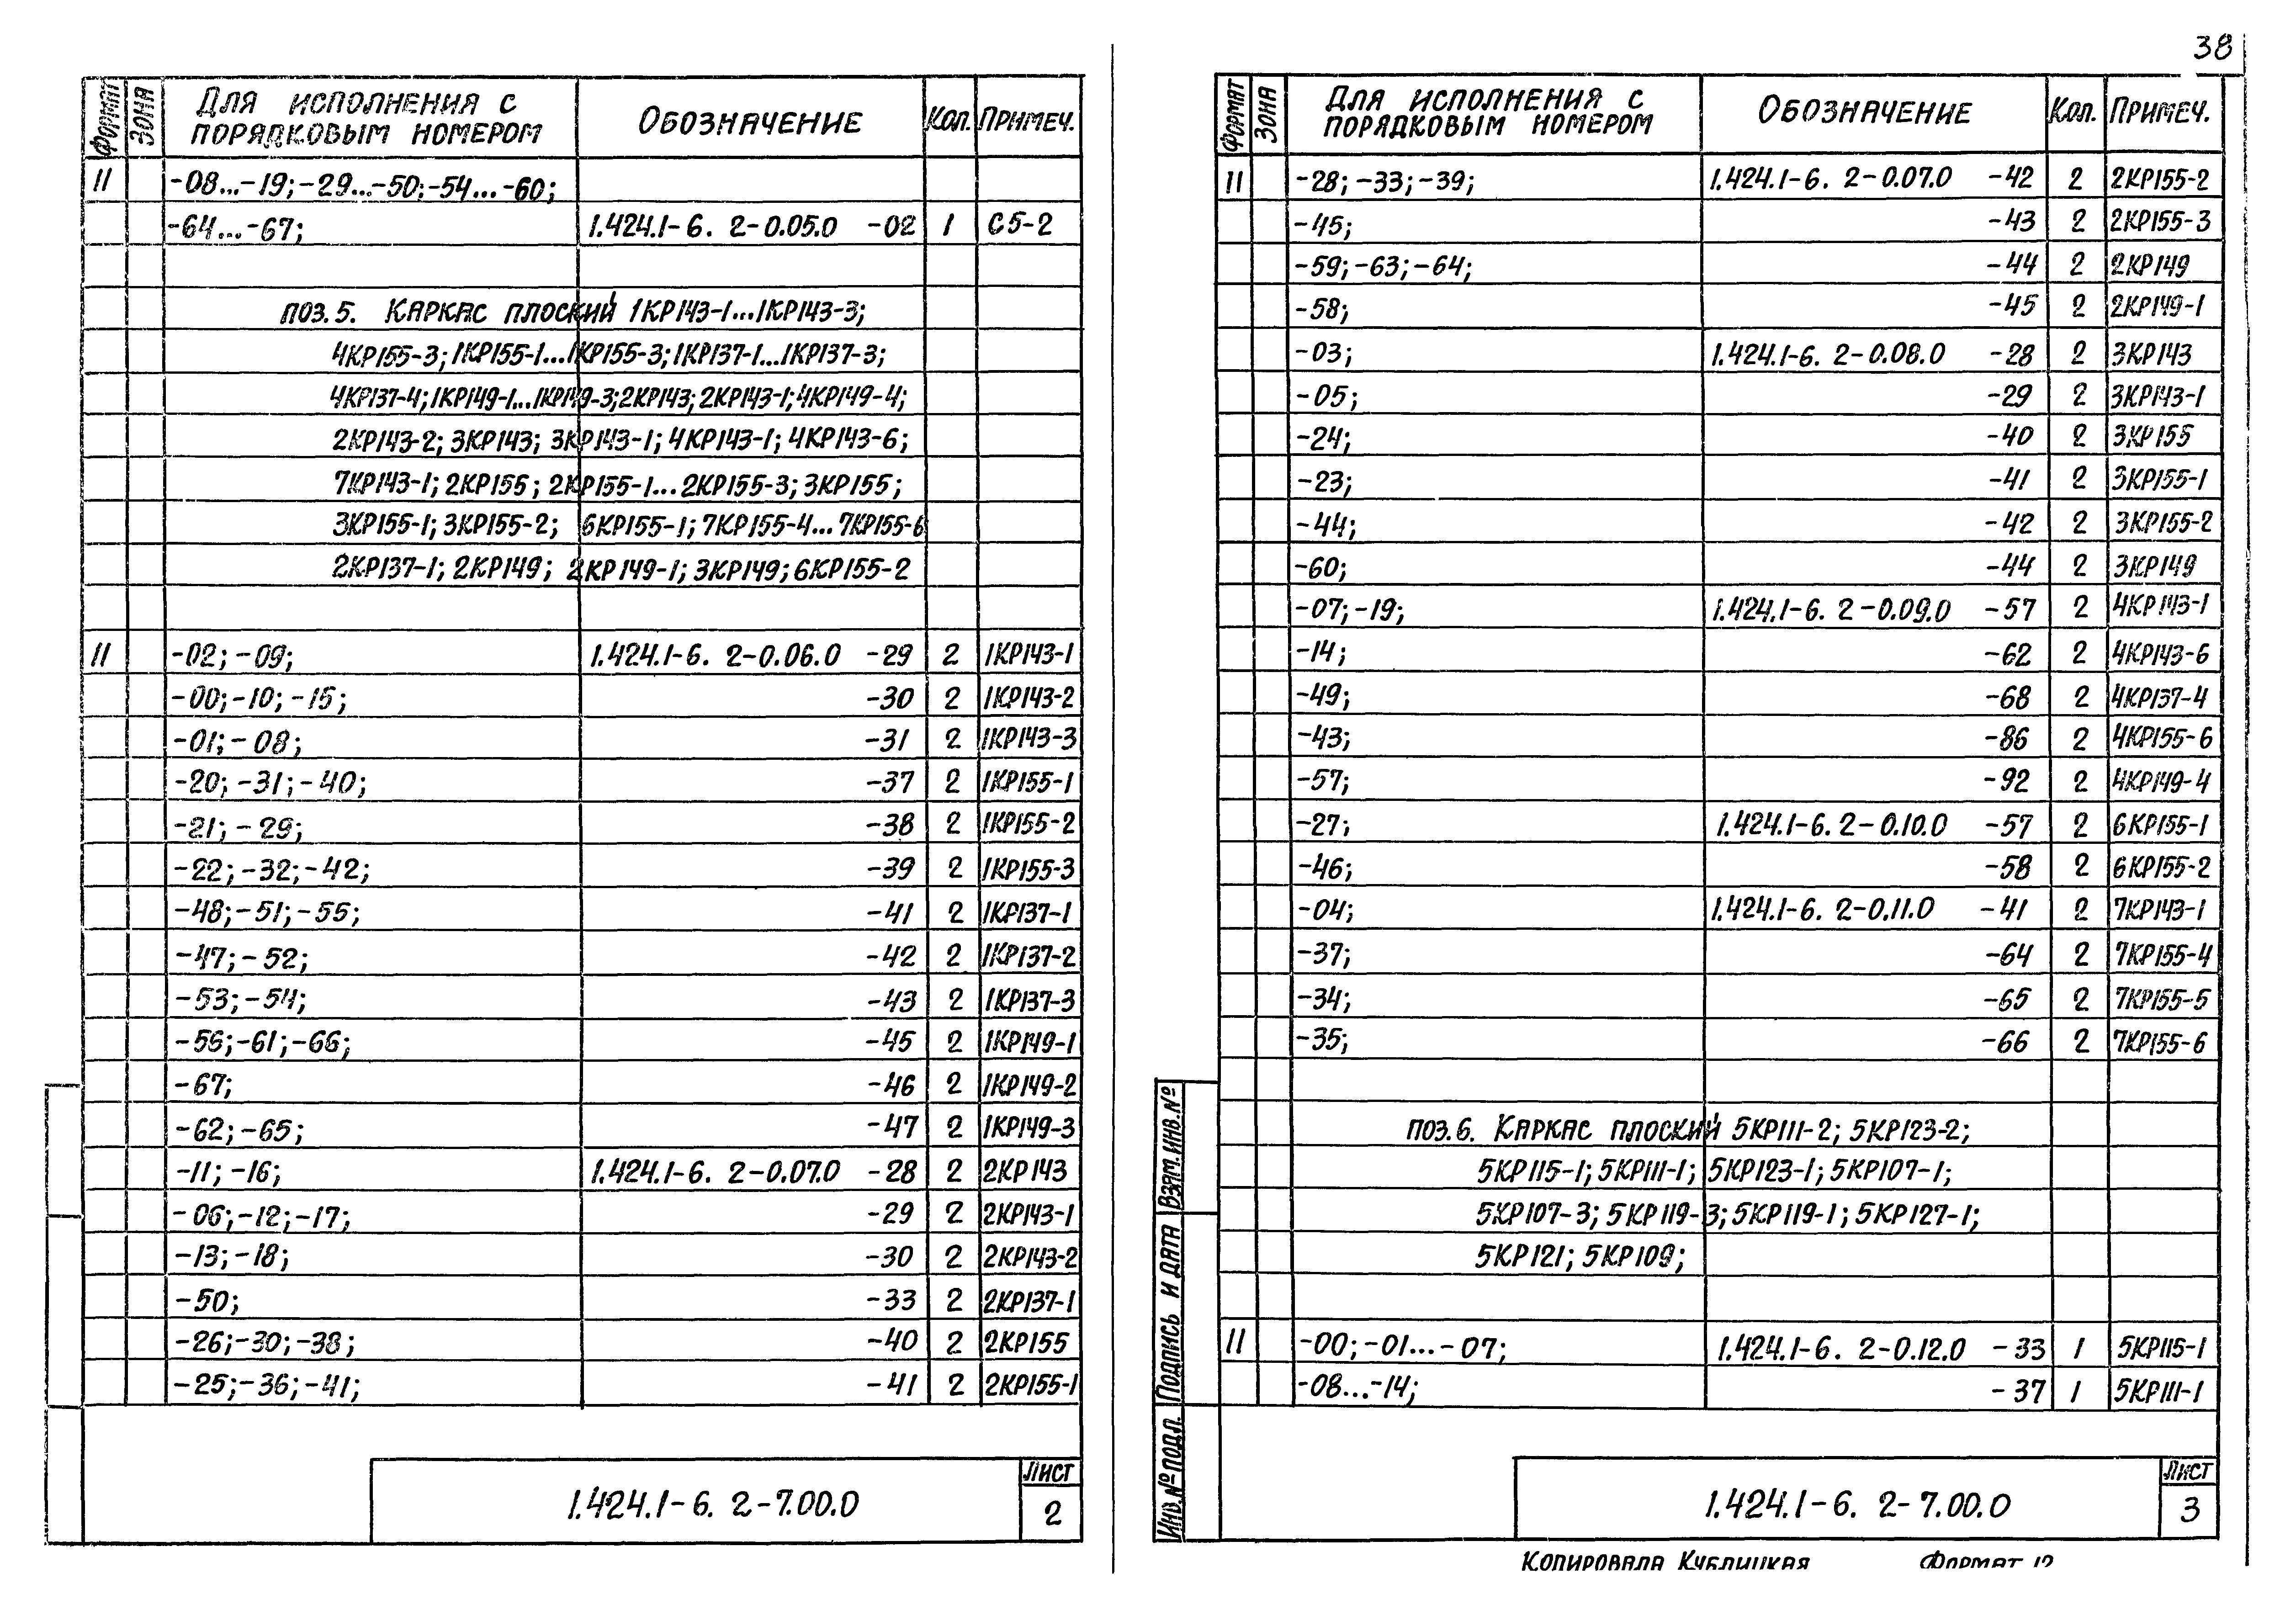 38
Формат Зона Для исполнения с порядковым номером Обозначение Кол. Примеч.
11 -08...-19; -29...-50; -54...-60;
-64...-67; 1.424.1-6. 2-0.05.0 -02 1 С5-2
поз. 5. Каркас плоский 1КР143-1...1КР143-3;
4КР155-3; 1КР155-1...1КР155-3; 1КР137-1...1КР137-3;
4КР137-4; 1КР149-1...1КР149-3; 2КР143; 2КР143-1; 4КР149-4;
2КР143-2; 3КР143; 3КР143-1; 4КР143-1; 4КР143-6;
7КР143-1; 2КР155; 2КР155-1...2КР155-3; 3КР155;
3КР155-1; 3КР155-2; 6КР155-1; 7КР155-4...7КР155-6
2КР137-1; 2КР149; 2КР149-1; 3КР149; 6КР155-2
11 -02; -09; 1.424.1-6. 2-0.06.0 -29 2 1КР143-1
-00; -10; -15; -30 2 1КР143-2
-01; -08; -31 2 1КР143-3
-20; -31; -40; -37 2 1КР155-1
-21; -29; -38 2 1КР155-2
-22; -32; -42; -39 2 1КР155-3
-48; -51; -55; -41 2 1КР137-1
-47; -52; -42 2 1КР137-2
-53; -54; -43 2 1КР137-3
-56; -61; -66; -45 2 1КР149-1
-67; -46 2 1КР149-2
-62; -65; -47 2 1КР149-3
-11; -16; 1.424.1-6. 2-0.07.0 -28 2 2КР143
-06; -12; -17; -29 2 2КР143-1
-13; -18; -30 2 2КР143-2
-50; -33 2 2КР137-1
-26; -30; -38; -40 2 2КР155
-25; -36; -41; -41 2 2КР155-1
1.424.1-6. 2-7.00.0 Лист 2
Формат Зона Для исполнения с порядковым номером Обозначение Кол. Примеч.
11 -28; -33; -39; 1.424.1-6. 2-0.07.0 -42 2 2КР155-2
-45; -43 2 2КР155-3
-59; -63; -64; -44 2 2КР149
-58; -45 2 2КР149-1
-03; 1.424.1-6. 2-0.08.0 -28 2 3КР143
-05; -29 2 3КР143-1
-24; -40 2 3КР155
-23; -41 2 3КР155-1
-44; -42 2 3КР155-2
-60; -44 2 3КР149
-07; -19; 1.424.1-6. 2-0.09.0 -57 2 4КР143-1
-14; -62 2 4КР143-6
-49; -68 2 4КР137-4
-43; -86 2 4КР155-6
-57; -92 2 4КР149-4
-27; 1.424.1-6. 2-0.10.0 -57 2 6КР155-1
-46; -58 2 6КР155-2
-04; 1.424.1-6. 2-0.11.0 -41 2 7КР143-1
-37; -64 2 7КР155-4
-34; -65 2 7КР155-5
-35; -66 2 7КР155-6
поз. 6. Каркас плоский 5КР111-2; 5КР123-2;
5КР115-1; 5КР111-1; 5КР123-1; 5КР107-1;
5КР107-3; 5КР119-3; 5КР119-1; 5КР127-1;
5КР121; 5КР109;
11 -00; -01...-07; 1.424.1-6. 2-0.12.0 -33 1 5КР115-1
-08...-14; -37 1 5КР111-1
Инв.№подл. Подпись и дата Взам.инв.№
1.424.1-6. 2-7.00.0 Лист 3
Копировала Кублицкая Формат 12